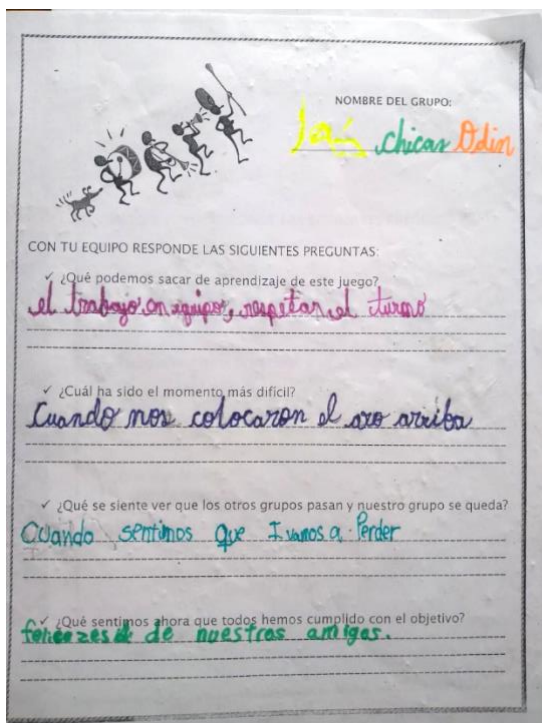 NOMBRE DEL GRUPO:
Las chicas Odin
CON TU EQUIPO RESPONDE LAS SIGUIENTES PREGUNTAS:
✓ ¿Qué podemos sacar de aprendizaje de este juego?
el trabajo en equipo, respetar el turno
✓ ¿Cuál ha sido el momento más difícil?
Cuando nos colocaron el aro arriba
✓ ¿Qué se siente ver que los otros grupos pasan y nuestro grupo se queda?
Cuando sentimos que Ivamos a Perder
✓ ¿Qué sentimos ahora que todos hemos cumplido con el objetivo?
de nuestras amigas.